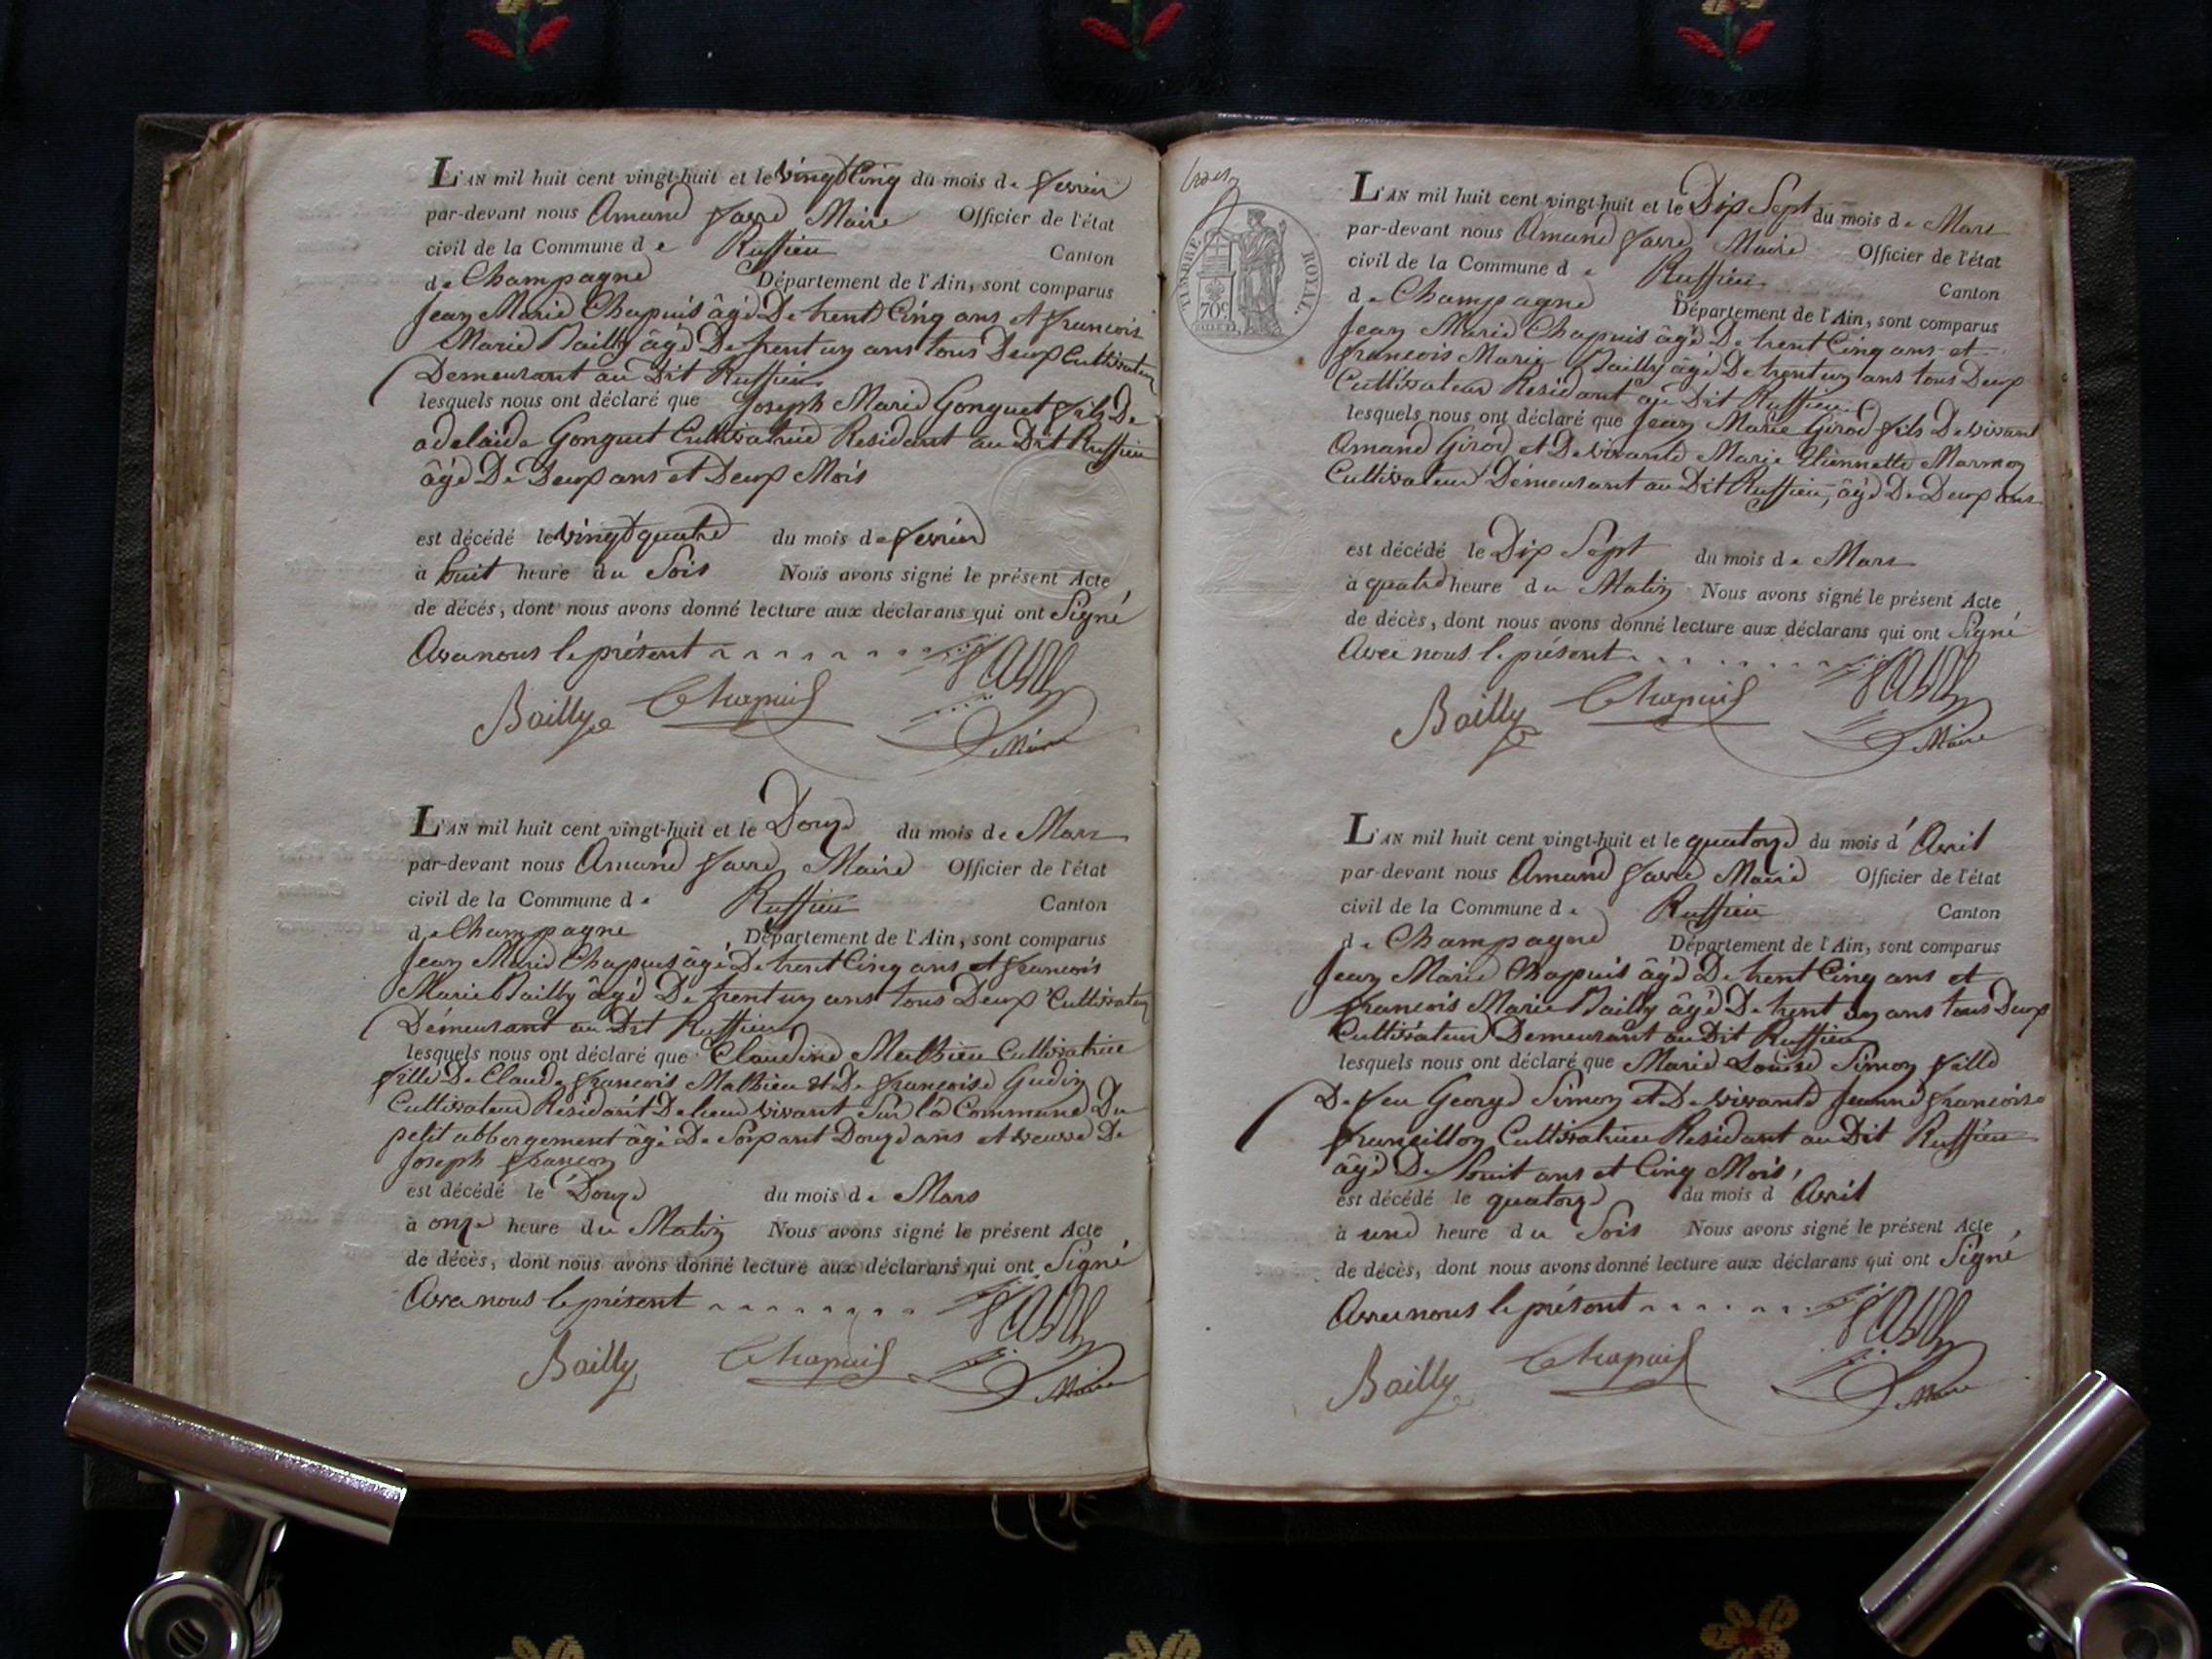 L'AN mil huit cent vingt-huit et le vingt Cinq du mois de fevrier
par-devant nous Amand favre Maire Officier de l'état
civil de la Commune de Ruffieu Canton
de Champagne Département de l'Ain, sont comparus
Jean Marie Chapuis âgé De trent Cinq ans et francois
Marie Bailly âgé De trent un ans tous Deux Cultivateur
Demeurant au Dit Ruffieu
lesquels nous ont déclaré que Joseph Marie Gonguet fils De
adelaide Gonguet Cultivatrice Residant au Dit Ruffieu
âgé De Deux ans et Deux Mois
est décédé le vingt quatre du mois de fevrier
à huit heure du Soir Nous avons signé le présent Acte
de décès, dont nous avons donné lecture aux déclarans qui ont Signé
Avec nous le présent
Bailly Chapuis favre
Maire
L'AN mil huit cent vingt-huit et le Douze du mois de Mars
par-devant nous Amand favre Maire Officier de l'état
civil de la Commune de Ruffieu Canton
de Champagne Département de l'Ain, sont comparus
Jean Marie Chapuis âgé De trent Cinq ans et francois
Marie Bailly âgé De trent un ans tous Deux Cultivateur
Démeurant au Dit Ruffieu
lesquels nous ont déclaré que Claudine Mathieu Cultivatrice
fille De Claude francois Mathieu et De francoise Gudin
Cultivateur Résidant De leur vivant Sur la Commune Du
petit abbergement âgé De Soixant Douze ans et veuve De
Joseph francon
est décédé le Douze du mois de Mars
à onze heure du Matin Nous avons signé le présent Acte
de décès, dont nous avons donné lecture aux déclarans qui ont Signé
Avec nous le présent
Bailly Chapuis favre
Maire
TIMBRE ROYAL
70c
L'AN mil huit cent vingt-huit et le Dix Sept du mois de Mars
par-devant nous Amand favre Maire Officier de l'état
civil de la Commune de Ruffieu Canton
de Champagne Département de l'Ain, sont comparus
Jean Marie Chapuis âgé De trent Cinq ans et
francois Marie Bailly âgé De trent un ans tous Deux
Cultivateur Residant au Dit Ruffieu
lesquels nous ont déclaré que Jean Marie Girod fils De vivant
Amand Girod et De vivante Marie Etiennette Marmon
Cultivateur Démeurant au Dit Ruffieu, âgé De Deux ans
est décédé le Dix Sept du mois de Mars
à quatre heure du Matin Nous avons signé le présent Acte
de décès, dont nous avons donné lecture aux déclarans qui ont Signé
Avec nous le présent
Bailly Chapuis favre
Maire
L'AN mil huit cent vingt-huit et le quatorze du mois d'Avril
par-devant nous Amand favre Maire Officier de l'état
civil de la Commune de Ruffieu Canton
de Champagne Département de l'Ain, sont comparus
Jean Marie Chapuis âgé De trent Cinq ans et
francois Marie Bailly âgé De trent un ans tous Deux
Cultivateur Demeurant au Dit Ruffieu
lesquels nous ont déclaré que Marie Louise Simon fille
De feu George Simon et De vivante Jeanne francoise
francillon Cultivatrice Residant au Dit Ruffieu
âgé De huit ans et Cinq Mois,
est décédé le quatorze du mois d Avril
à une heure du Soir Nous avons signé le présent Acte
de décès, dont nous avons donné lecture aux déclarans qui ont Signé
Avec nous le présent
Bailly Chapuis favre
Maire